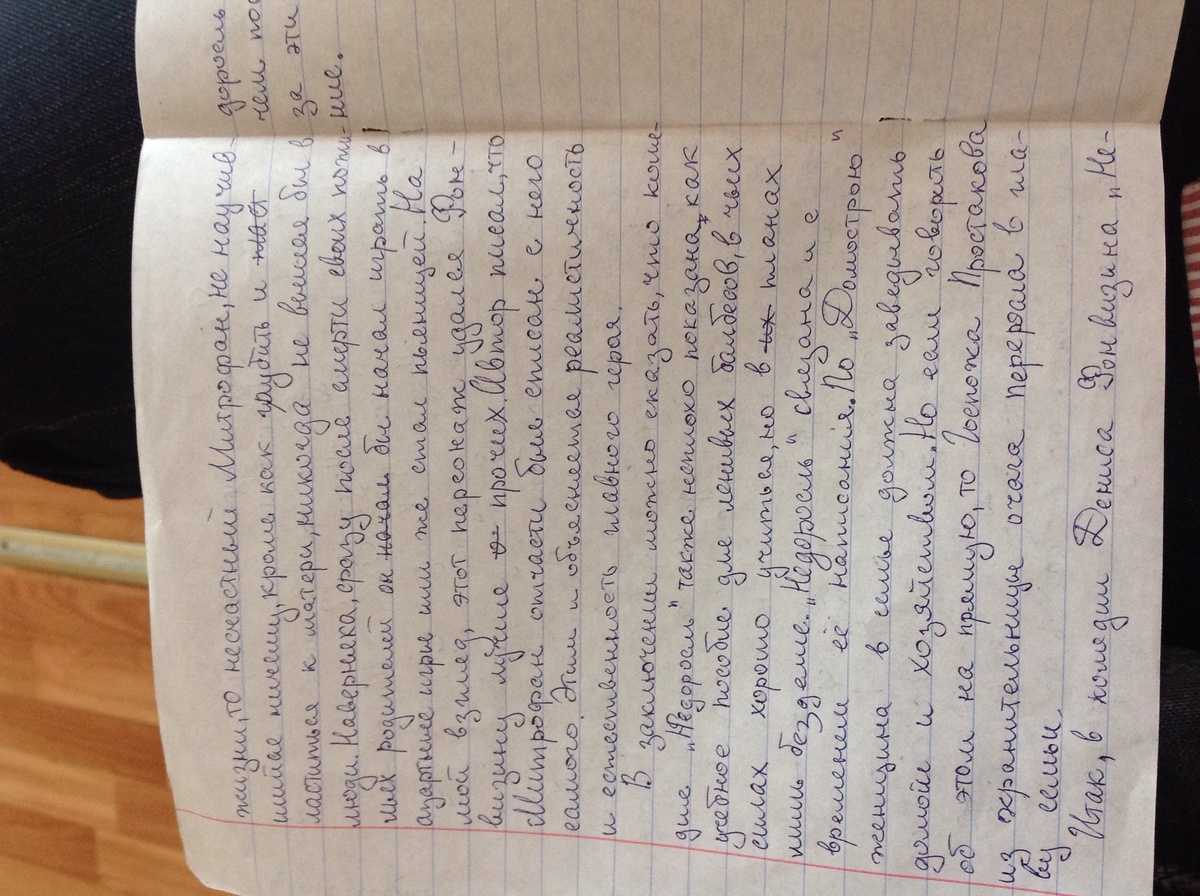 жизни, то несчастный Митрофан, не научив-
шийся ничему, кроме как грубить и ласт
ластиться к матери, никогда не вышел бы в
люди. Наверняка, сразу после смерти своих пожи-
лых родителей он начал бы начал играть в
азартные игры или же стал пьяницей. На
мой взгляд, этот персонаж удался Фон-
визину лучше о прочих. Автор писал, что
Митрофан отчасти был списан с него
самого. Этим и объясняется реалистичность
и естественность главного героя.
В заключении можно сказать, что коме-
дие „Недоросль" также неплохо показана, как
учебное пособие для ленивых балбесов, в чьих
силах хорошо учиться, но в их планах
лишь безделие. „Недоросль" связана и с
временем её написания. По „Домострою"
женщина в семье должна заведывать
домом и хозяйством. Но если говорить
об этом на прямую, то Госпожа Простакова
из хранительницы очага перерала в гла-
ву семьи.
Итак, в комедии Дениса Фонвизина „Не-
доросль
чем пос
за эти
ние.